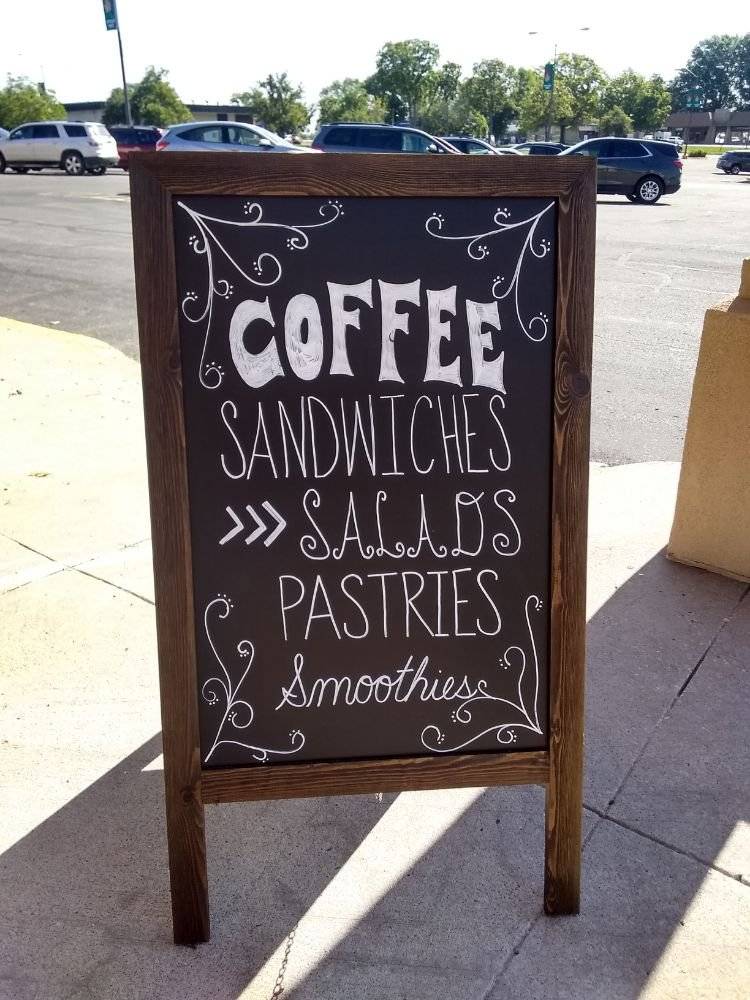 COFFEE
SANDWICHES
>>> SALADS
PASTRIES
Smoothies